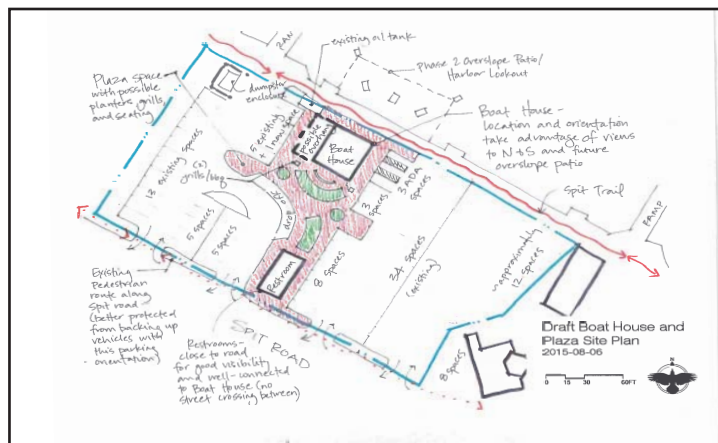 RAMP
existing oil tank
Phase 2 Overslope Patio/
Harbor Lookout
Plaza space
with possible
planters, grills
and seating
dumpster
enclosure
5 existing
+ 1 new space
possible
overhang
Boat
House
Boat House -
location and orientation
take advantage of views
to N & S and future
overslope patio
13 existing spaces
(2)
grills/bbq
3 ADA
spaces
3
spaces
Spit Trail
RAMP
drop off
5 spaces
5 spaces
8 spaces
34 spaces
(existing)
approximately
12 spaces
Restroom
Existing
Pedestrian
route along
Spit road
(better protected
from backing up
vehicles with
this parking
orientation)
SPIT ROAD
Restrooms-
close to road
for good visibility
and well-connected
to Boat House (no
street crossing between)
8 spaces
Draft Boat House and
Plaza Site Plan
2015-08-06
N
0 15 30 60FT